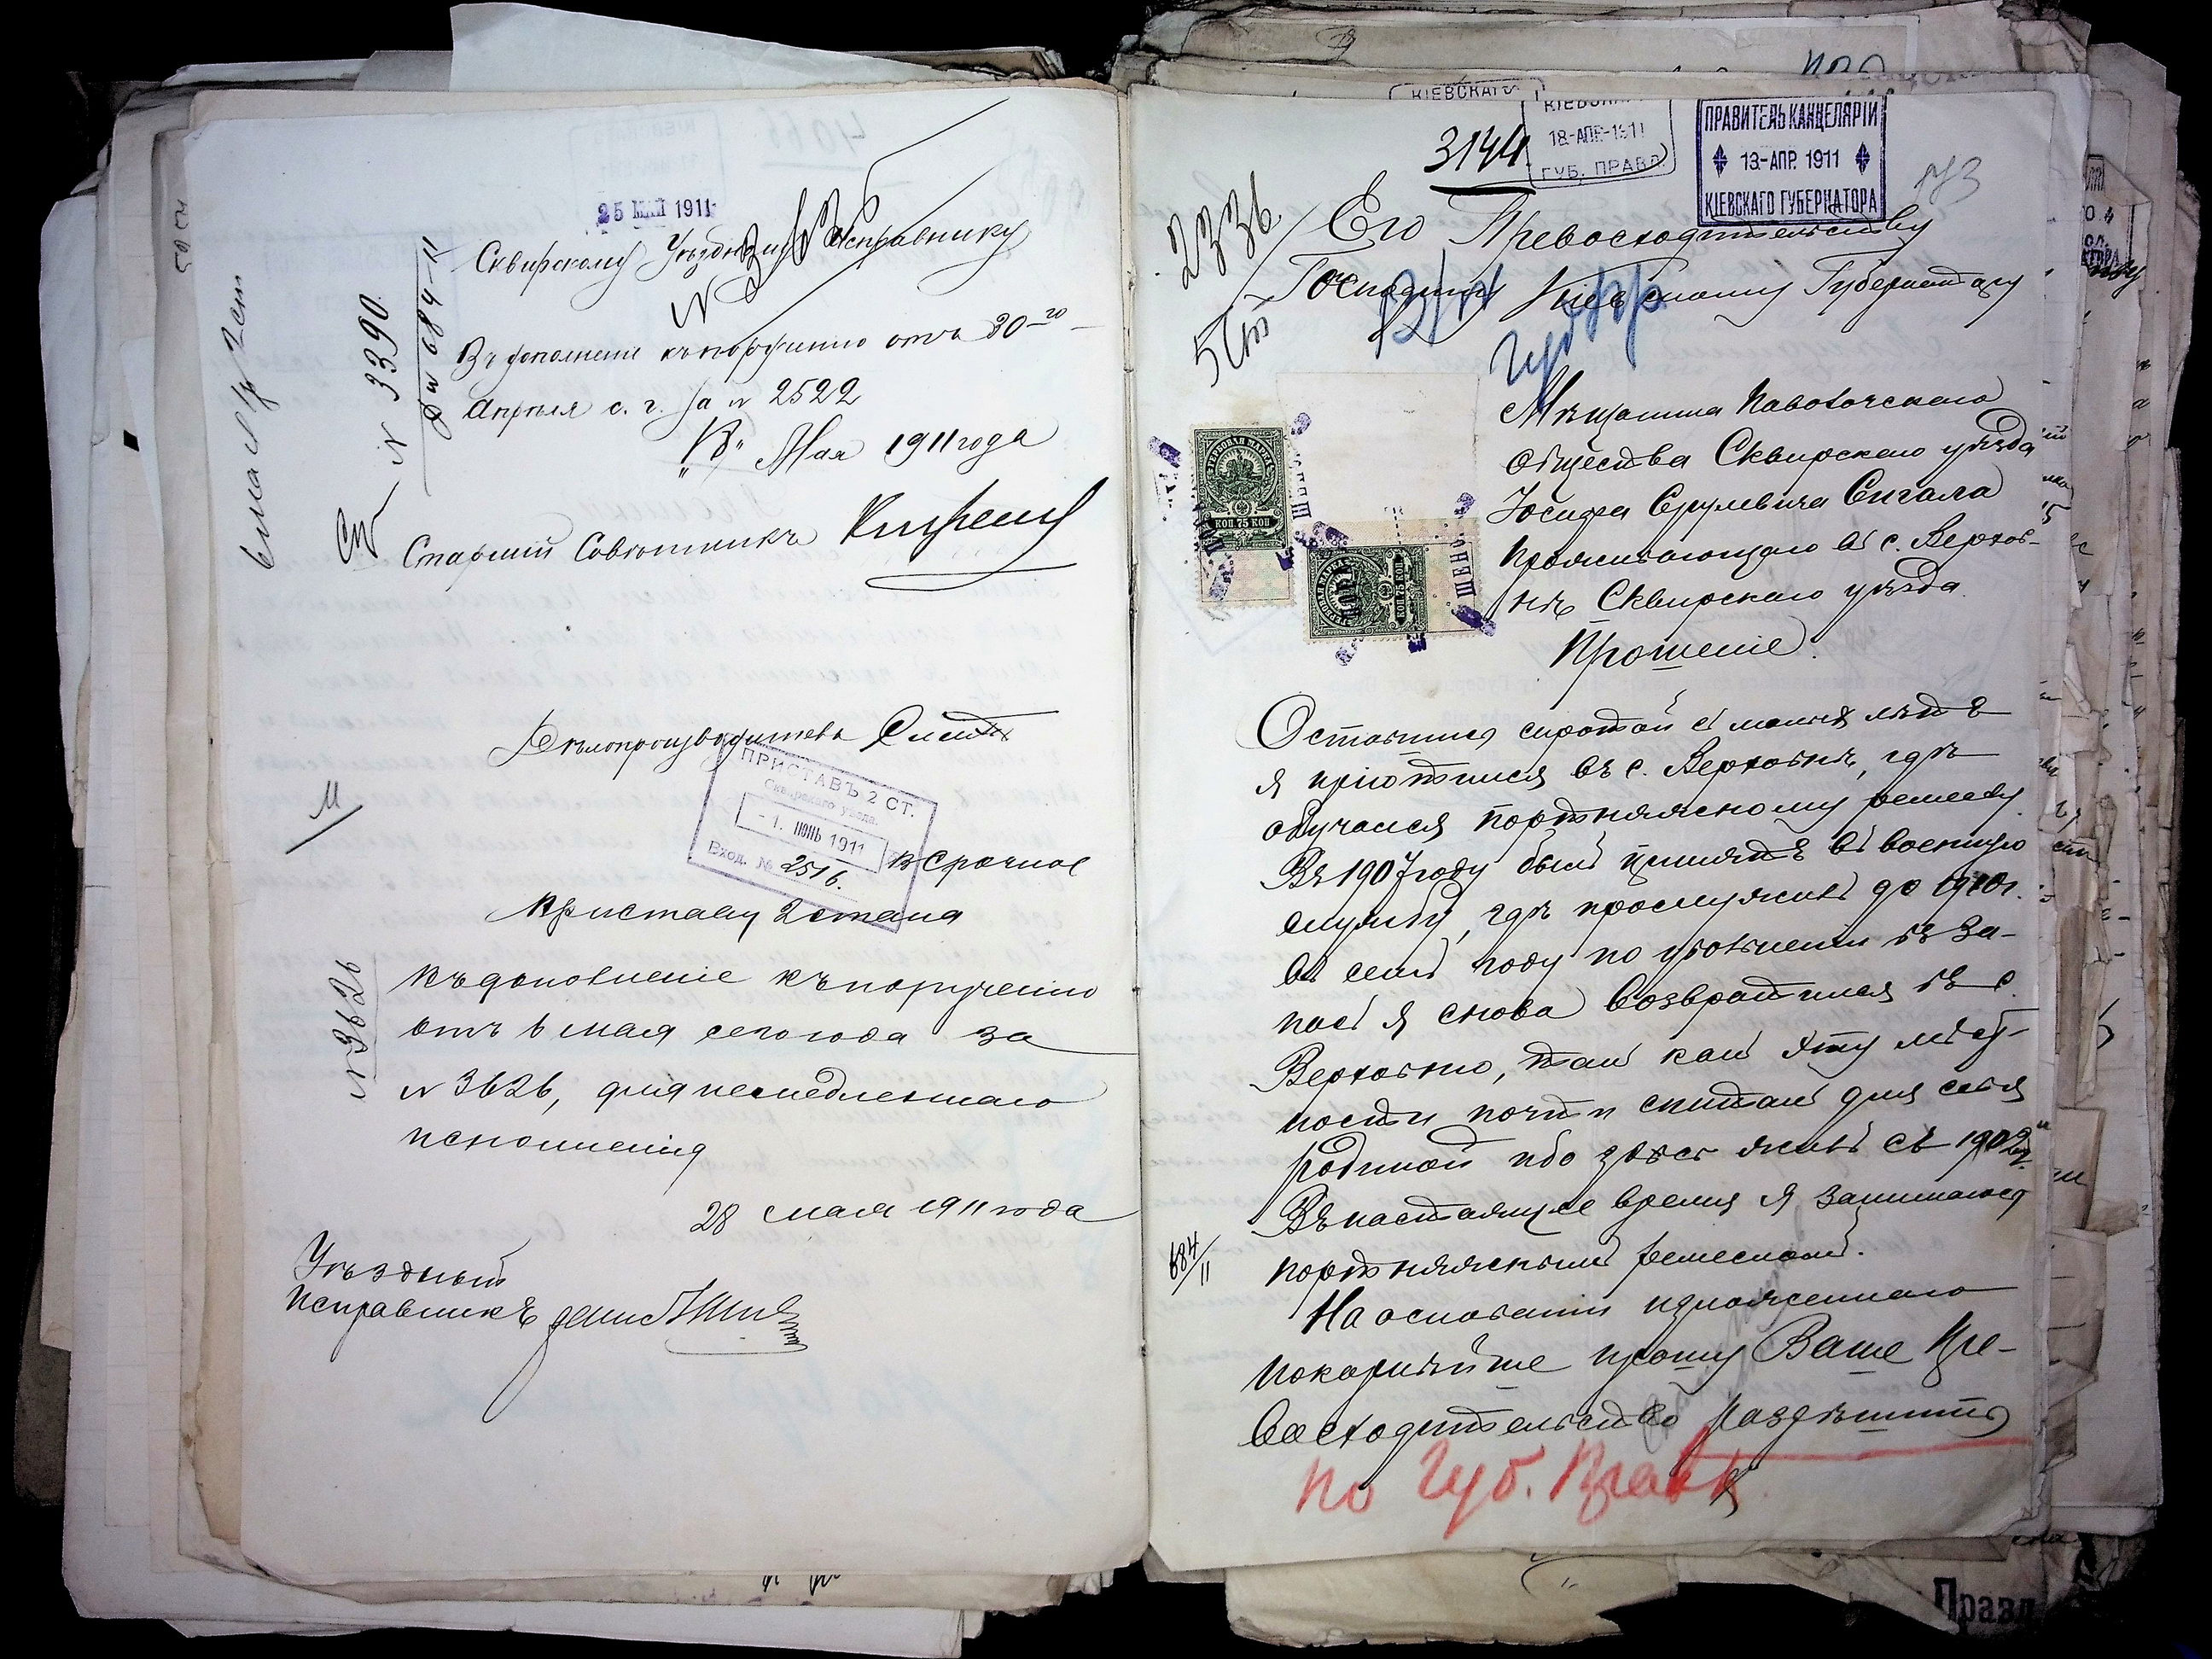 25 МАЙ 1911
Сквирскому Уѣздному Исправнику
Въ дополненіе къ порученію отъ 30-го
Апрѣля с. г. за № 2522
"18" Мая 1911 года
№ 3390
684-11
Старшій Совѣтникъ
Дѣлопроизводитель
ПРИСТАВЪ 2 СТ.
Сквирскаго уѣзда.
- 1. ІЮНЬ 1911
Вход. № 2516.
Срочное
Приставу 2 стана
Въ дополненіе къ порученію
отъ 6 мая сего года за
№ 3626, для немедленнаго
исполненія
28 мая 1911 года
№ 3626
Уѣздный
Исправникъ
КІЕВСКАГО
3144
18-АПР-1911
ГУБ. ПРАВЛ.
ПРАВИТЕЛЬ КАНЦЕЛЯРІИ
13-АПР. 1911
КІЕВСКАГО ГУБЕРНАТОРА
173
2336
5 ст
Его Превосходительству
Господину Кіевскому Губернатору
Мѣщанина Паволочскаго
Общества Сквирскаго уѣзда
Іосифа Срулевича Сигала
проживающаго въ с. Верхов-
нѣ Сквирскаго уѣзда.
Прошеніе.
ГЕРБОВАЯ МАРКА
КОП. 75 КОП
ГЕРБОВАЯ МАРКА
КОП. 75 КОП
Оставшись сиротой съ малыхъ лѣтъ
я пріютился въ с. Верховнѣ, гдѣ
обучался портняжному ремеслу.
Въ 1907 году былъ принятъ въ военную
службу, гдѣ прослужилъ до 1910 г.
въ семъ году по увольненіи въ за-
пасъ я снова возвратился въ с.
Верховню, такъ какъ эту мѣст-
ность почти считаю для себя
родиной ибо здѣсь живъ съ 1902 г.
Въ настоящее время я занимаюсь
портняжнымъ ремесломъ.
На основаніи изложеннаго
покорнѣйше прошу Ваше Пре-
восходительство разрѣшить
684/11
По Губ. Правл.